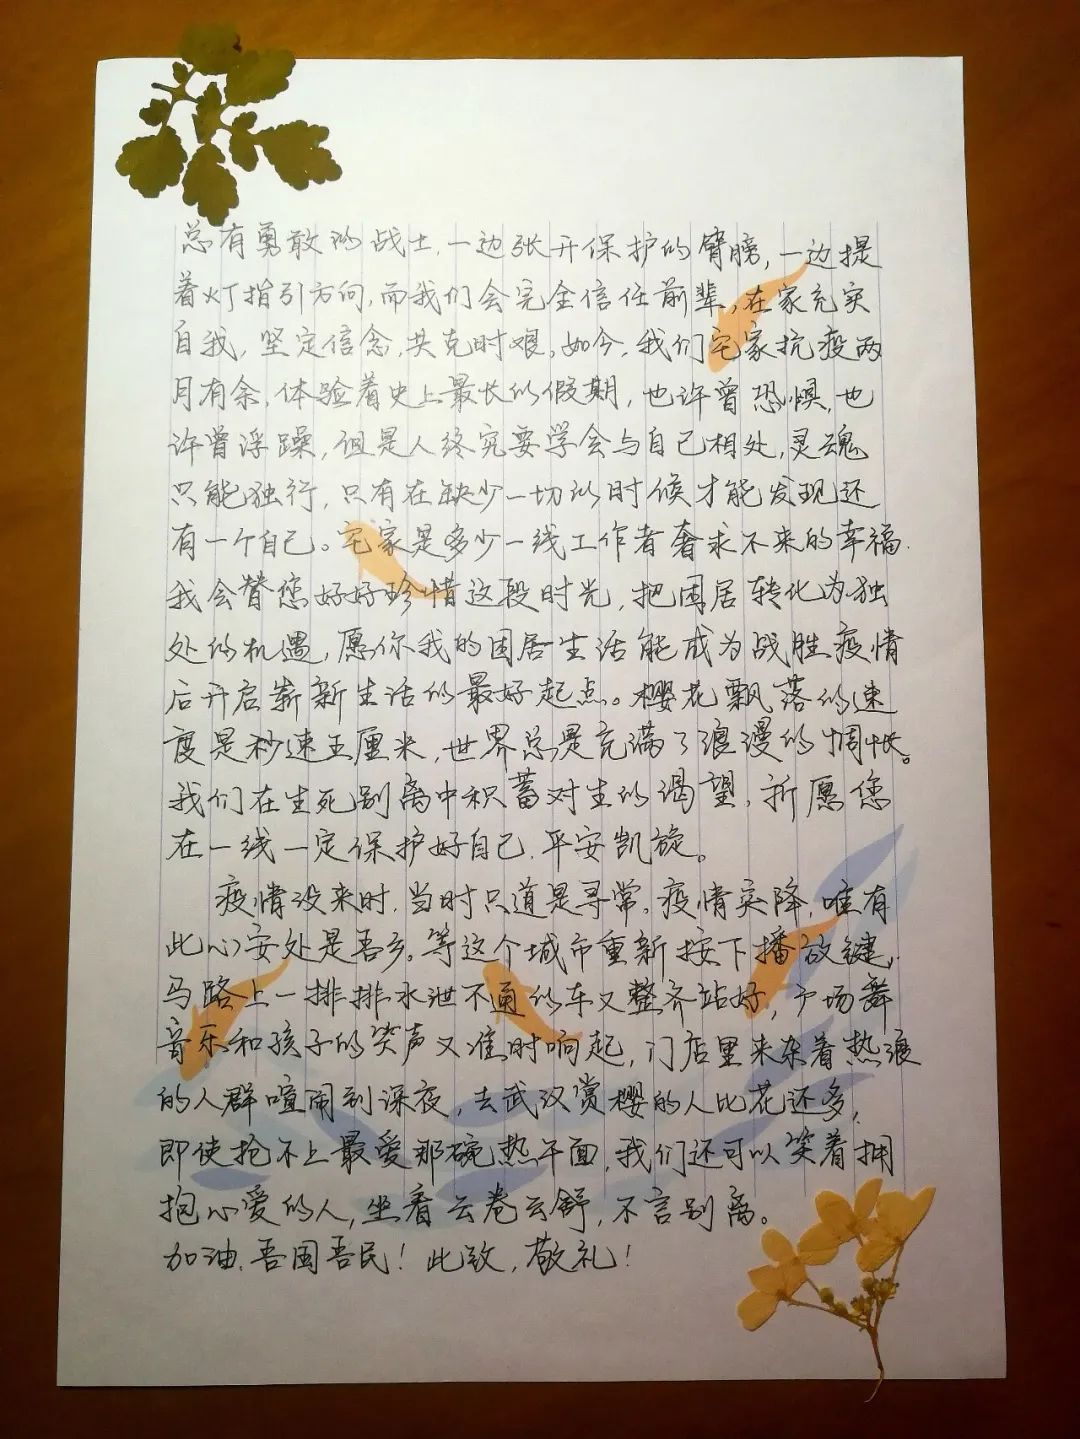 总有勇敢的战士,一边张开保护的臂膀,一边提
着灯指引方向,而我们会完全信任前辈,在家充实
自我,坚定信念,共克时艰。如今,我们宅家抗疫两
月有余,体验着史上最长的假期,也许曾恐惧,也
许曾浮躁,但是人终究要学会与自己相处,灵魂
只能独行,只有在缺少一切的时候才能发现还
有一个自己。宅家是多少一线工作者奢求不来的幸福.
我会替您好好珍惜这段时光,把困居转化为独
处的机遇,愿你我的困居生活能成为战胜疫情
后开启崭新生活的最好起点。樱花飘落的速
度是秒速五厘米,世界总是充满了浪漫的惆怅。
我们在生死别离中积蓄对生的渴望,祈愿您
在一线一定保护好自己.平安凯旋。
疫情没来时,当时只道是寻常,疫情突降,唯有
此心安处是吾乡。等这个城市重新按下播放键,
马路上一排排水泄不通的车又整齐站好,广场舞
音乐和孩子的笑声又准时响起,门店里夹杂着热浪
的人群喧闹到深夜,去武汉赏樱的人比花还多,
即使抢不上最爱那碗热干面,我们还可以笑着拥
抱心爱的人,坐看云卷云舒,不言别离。
加油.吾国吾民!此致,敬礼!